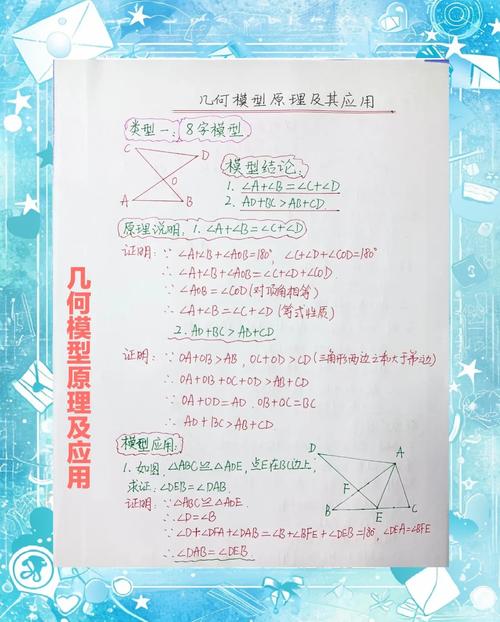 几何模型原理及其应用
类型一：8字模型
C
D
O
A
B
模型结论：
1. ∠A+∠B=∠C+∠D
2. AD+BC>AB+CD.
原理说明：1. ∠A+∠B=∠C+∠D
证明：∵∠A+∠B+∠AOB=180°, ∠C+∠D+∠COD=180°
∴∠A+∠B+∠AOB=∠C+∠D+∠COD.
∵∠AOB=∠COD(对顶角相等)
∴∠A+∠B=∠C+∠D (等式性质)
2. AD+BC>AB+CD
证明：∵OA+OB>AB, OC+OD>CD(三角形两边之和大于第三边)
∴OA+OB+OC+OD>AB+CD
∵OA+OD=AD. OB+OC=BC
∴AD+BC>AB+CD.
模型应用：
1. 如图, △ABC≌△ADE, 点E在BC边上,
求证: ∠DEB=∠DAB.
证明：∵△ABC≌△ADE.
∴∠D=∠B
∵∠D+∠DFA+∠DAB=∠B+∠BFE+∠DEB=180°, ∠DFA=∠BFE
∴∠DAB=∠DEB.
D
A
F
B
E
C
几何模型原理及应用